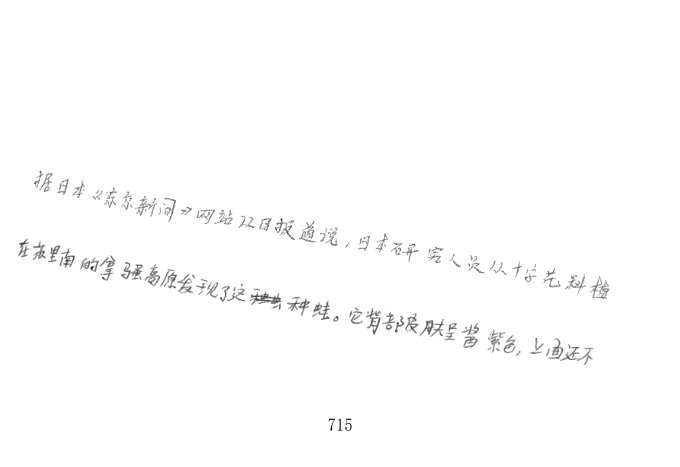 据日本《东京新闻》网站22日报道说，日本研究人员从十字花科植
在苏里南的拿骚高原发现了这种蛙。它背部皮肤呈酱紫色，上面还不
715